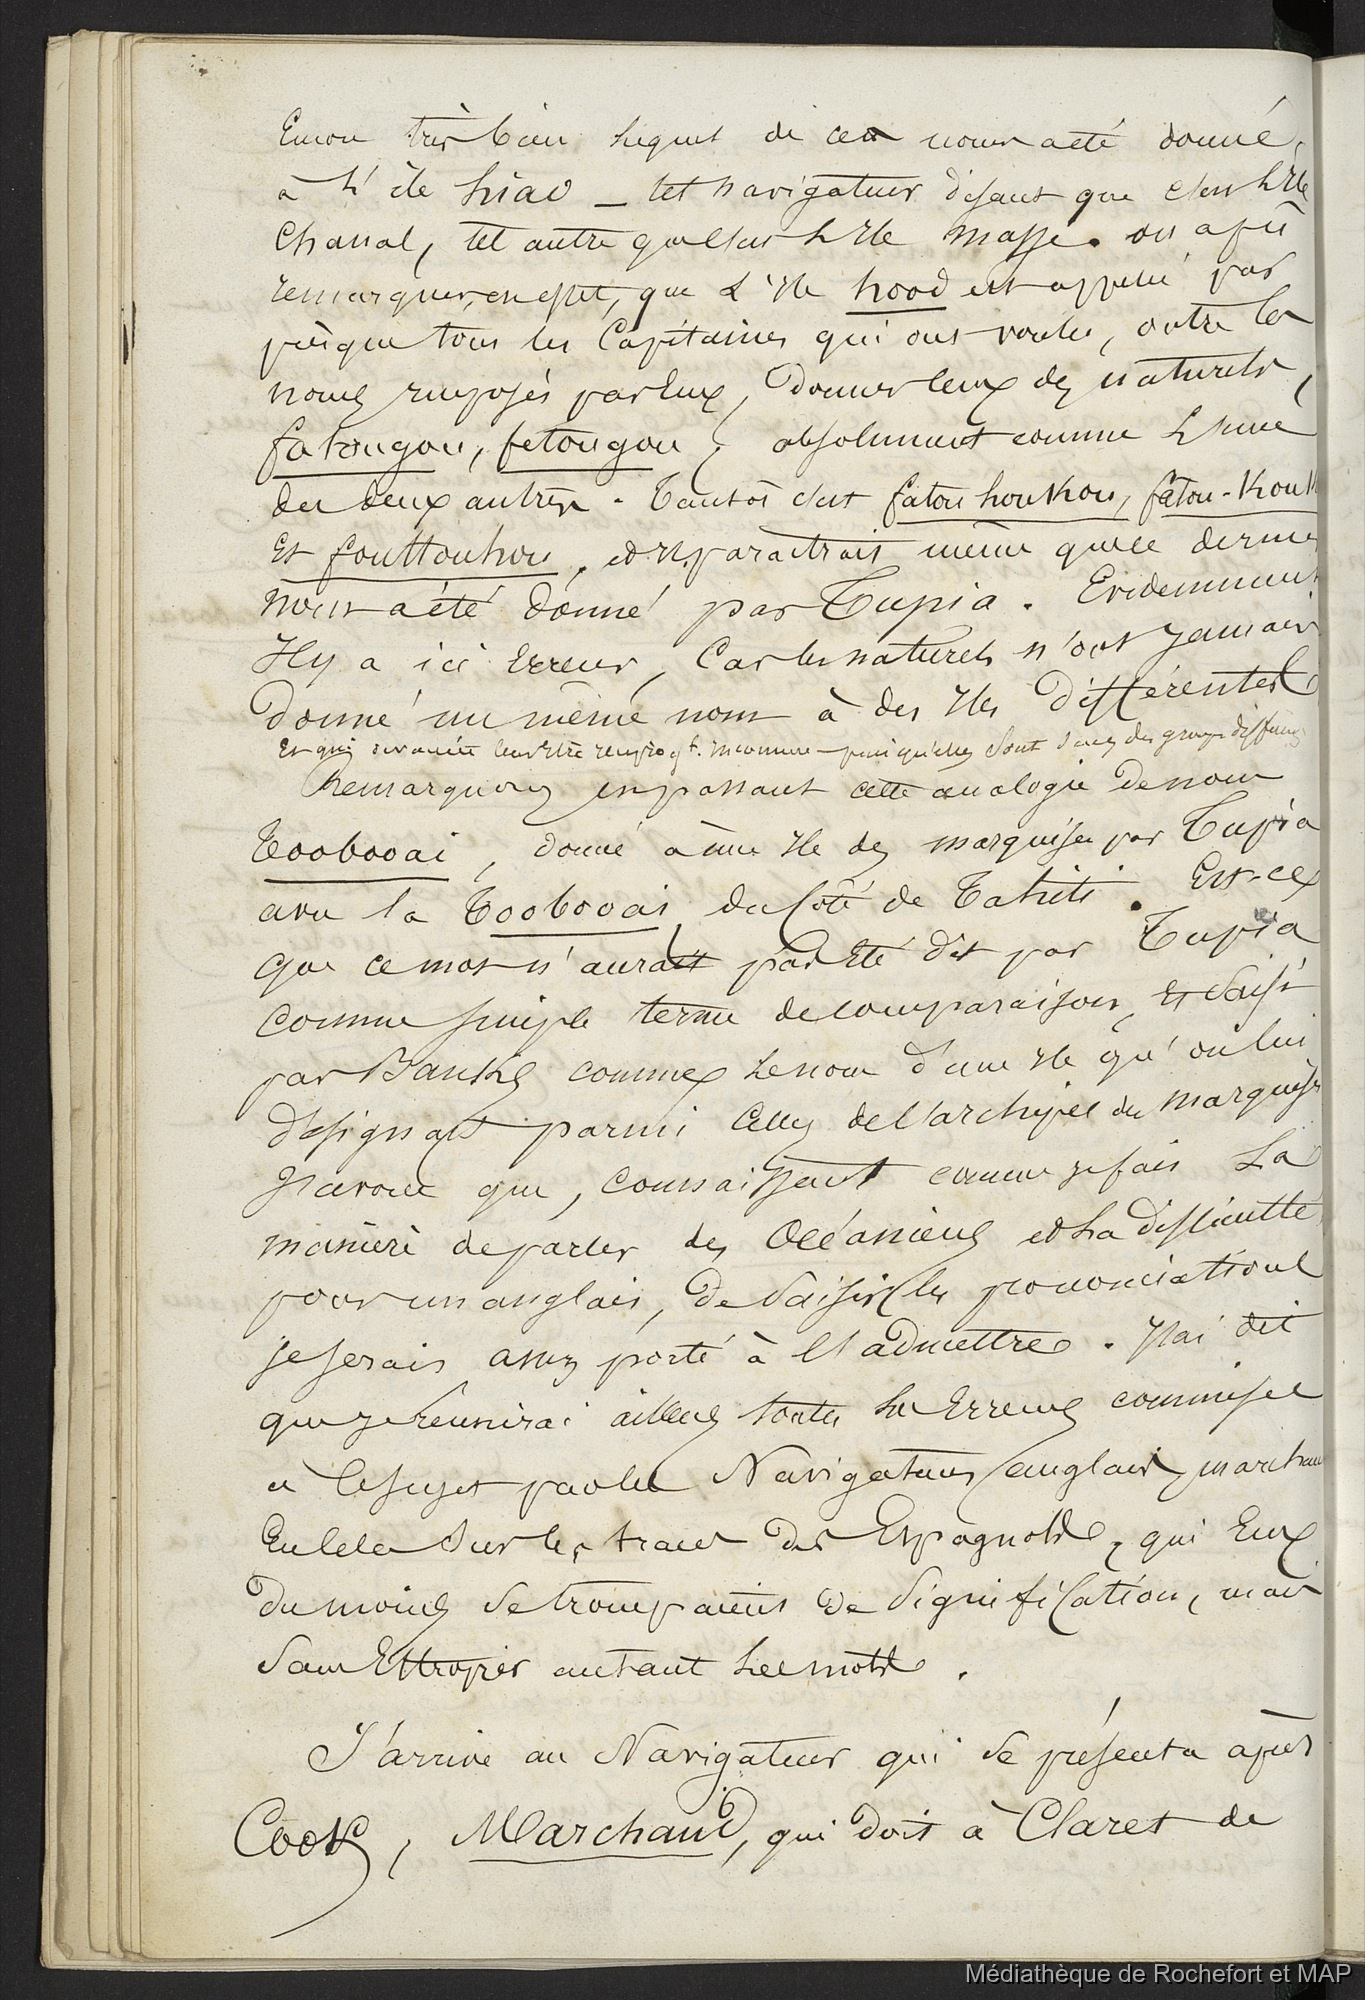 Encore très bien lequel de ces noms a été donné
à l'île hiao _ tel navigateur disant que c'est l'Ile
Chanal, tel autre que c'est l'Ile Masse. on a pu
remarquer, en effet, que L'Ile hood est appelée par
presque tous les Capitaines qui ont voulu, outre les
noms imposés par Eux, Donner ceux des naturels,
fatougou, fetougou, absolument comme l'une
des deux autres. Tantôt c'est fatou houkou, fatou-Kouk
Et fouttouhou, et il paraitrait même que ce dernier
nom a été Donné par Tupia. Evidemment
Il y a ici Erreur, Car les naturels n'ont jamais
Donné un même nom à des Iles Différentes
Et qui devaient leur être inconnues puisqu'elles sont dans des groupes différens
Remarquons en passant cette analogie De nom
Toobooai, donné à une Ile des marquises par Tupia
avec la Toobooai du Côté de Tahiti. Est-ce
que ce mot n'aurait pas été dit par Tupia
Comme simple terme de comparaison, et saisi
par Banks comme le nom d'une Ile qu'on lui
désignait parmi celles de l'archipel des Marquises
J'avoue que, Connaissant comme je fais La
manière de parler des Océaniens et La difficulté
pour un anglais, De Saisir les prononciations
je serais assez porté à l'admettre. J'ai dit
que je réunirai ailleurs toutes les Erreurs commises
à ce sujet par les Navigateurs anglais, marchant
En cela Sur les traces Des Espagnols, qui Eux
Du moins Se trompaient de Signification, mais
Sans Estropier autant Les mots.
J'arrive au Navigateur qui Se présenta après
Cook, Marchand, qui Doit à Claret de
Médiathèque de Rochefort et MAP